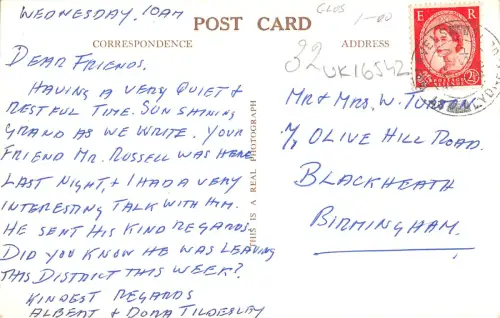 WEDNESDAY, 10AM
POST CARD
GLOS
1-00
CORRESPONDENCE
ADDRESS
32
UK16542
E R
2½
DEAR FRIENDS.
HAVING A VERY QUIET &
RESTFUL TIME. SUN SHINING
GRAND AS WE WRITE. YOUR
FRIEND MR. RUSSELL WAS HERE
LAST NIGHT, & I HAD A VERY
INTERESTING TALK WITH HIM.
HE SENT HIS KIND REGARDS.
DID YOU KNOW HE WAS LEAVING
THIS DISTRICT THIS WEEK?
KINDEST REGARDS
ALBERT & DORA TILDESLEY
THIS IS A REAL PHOTOGRAPH
MR & MRS. W. TUXTON
7, OLIVE HILL ROAD.
BLACKHEATH
BIRMINGHAM.